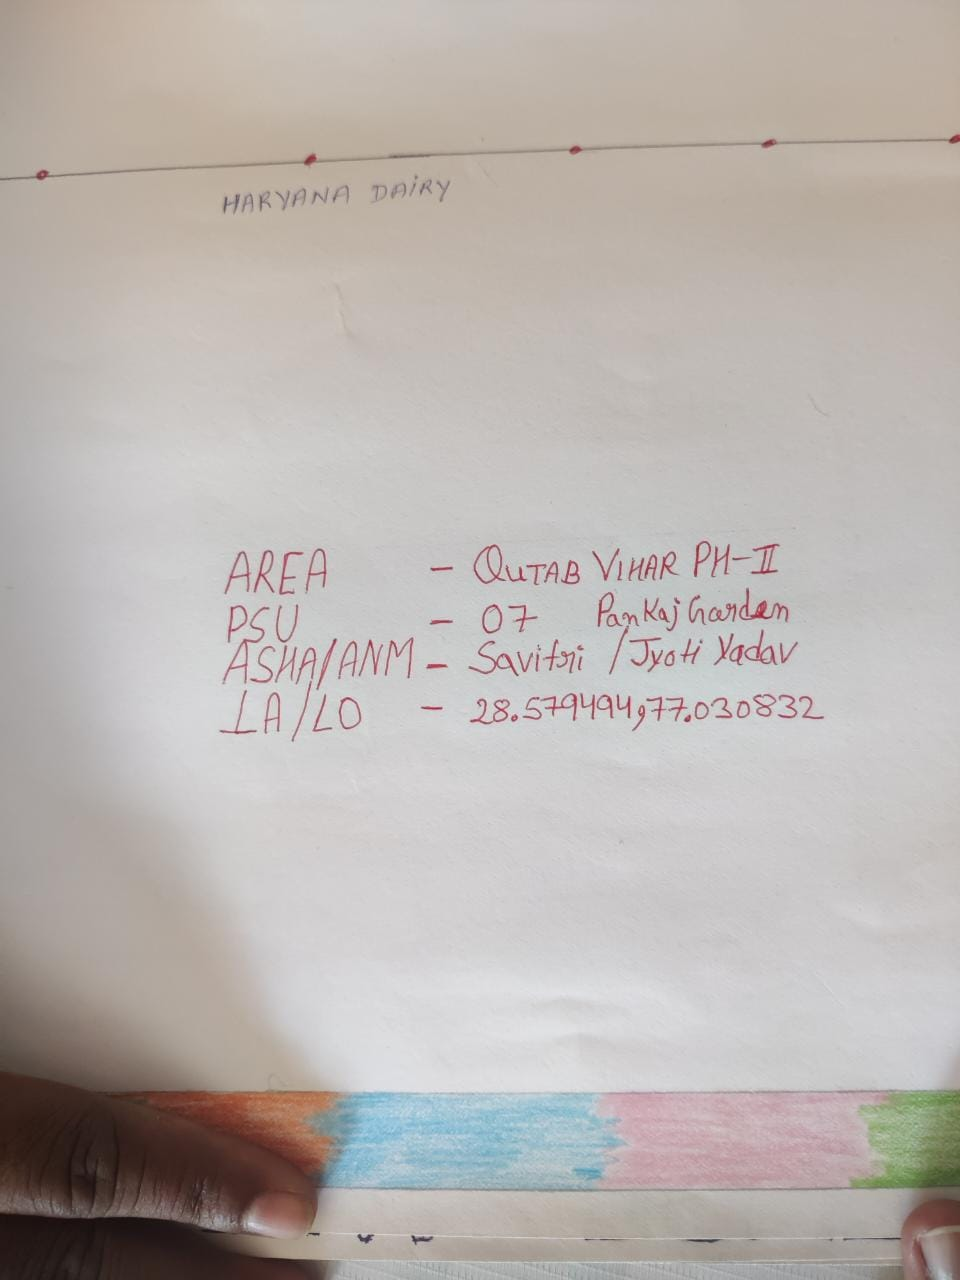 HARYANA DAiRY
AREA - QUTAB VIHAR PH-II
PSU - 07 Pankaj Garden
ASHA/ANM - Savitri / Jyoti Yadav
LA/LO - 28.579494,77.030832